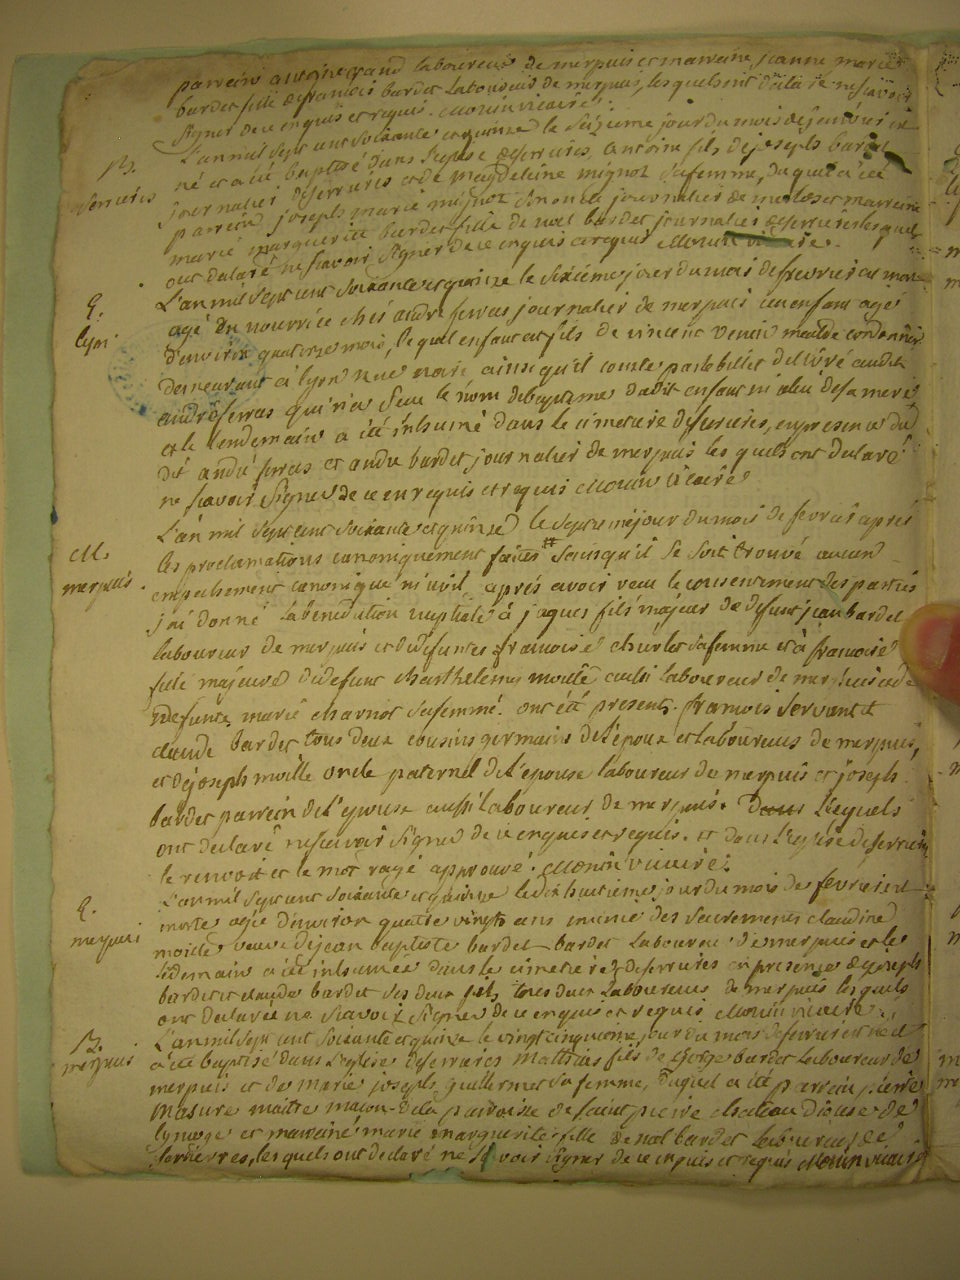 parrein antoine grand laboureur de merpuis et marreine jeanne marie
bardet fille de francois bardet laboureur de merpuis, lesquels ont déclaré ne scavoir
signer de ce enquis et requis. Morin vicaire.
B.
L'an mil sept cent soixante et quinze le seizieme jour du mois de janvier est
serrieres
né et a été baptisé dans l'eglise de serrieres, antoine fils de joseph bardet
journalier de serrieres et de magdeleine mignot sa femme, duquel a été
parrein joseph marie mignot son oncle journalier de et marreine
marie marguerite bardet fille de noel bardet journalier de serrieres lesquels
ont declaré ne scavoir signer de ce enquis et requis Morin vicaire.
L'an mil sept cent soixante et quinze le sixiéme jour du mois de fevrier est mort
q.
agé en nourrice chés andré ferras journalier de merpuis un enfant agé
lyon
d'environ quatorze mois, lequel enfant est fils de vincent maitre cordonnier
demeurant à lyon rue noire ainsi qu'il conste par le billet delivré audit
andré ferras qui n'a sceu le nom de baptême dudit enfant ni celui de sa mere
et le lendemain a été inhumé dans le cimetiere de serrieres, en presence du
dit andré ferras et andré bardet journalier de merpuis lesquels ont declaré
ne scavoir signer de ce enquis et requis Morin vicaire
L'an mil sept cent soixante et quinze le septiéme jour du mois de fevrier aprés
M.
les proclamations canoniquement faites # sans qu'il se soit trouvé aucun
merpuis
empechement canonique ni civil, aprés avoir recu le consentement des parties
j'ai donné la benediction nuptiale à jaques fils majeur de defunt jean bardet
laboureur de merpuis et de defunte francoise charlet sa femme et à francoise
fille majeure de defunt barthelemy moille aussi laboureur de merpuis et de
defunte marie charnot sa femme. ont été presents francois servant et
claude bardet tous deux cousins germains de l'epoux et laboureurs de merpuis,
et de joseph moille oncle paternel de l'epouse laboureur de merpuis et joseph
bardet parrein de l'epouse aussi laboureur de merpuis. dans lesquels
ont declaré ne scavoir signer de ce enquis et requis. et dans l'eglise de serrieres
le renvoit et le mot rayé approuvé. Morin vicaire.
L'an mil sept cent soixante et quinze le dix huitieme jour du mois de fevrier est
q.
morte agée d'environ quatre vingts ans munie des sacrements claudine
merpuis
moille veuve de jean baptiste bardet bardet laboureur de merpuis et le
lendemain a été inhumée dans le cimetiere de serrieres en presence de joseph
bardet et claude bardet ses deux fils, tous deux laboureurs de merpuis lesquels
ont declaré ne scavoir signer de ce enquis et requis Morin vicaire.
B.
L'an mil sept cent soixante et quinze le vingt cinquieme jour du mois de fevrier est né et
merpuis
a été baptisé dans l'eglise de serrieres Matthias fils de George bardet laboureur de
merpuis et de marie joseph guillermet sa femme, duquel a été parrein pierre
Masure maitre macon de la paroisse de saint pierre chateau diocese de
lymoge et marreine marie marguerite fille de noel bardet laboureur de
serrieres, lesquels ont declaré ne scavoir signer de ce enquis et requis Morin vicaire